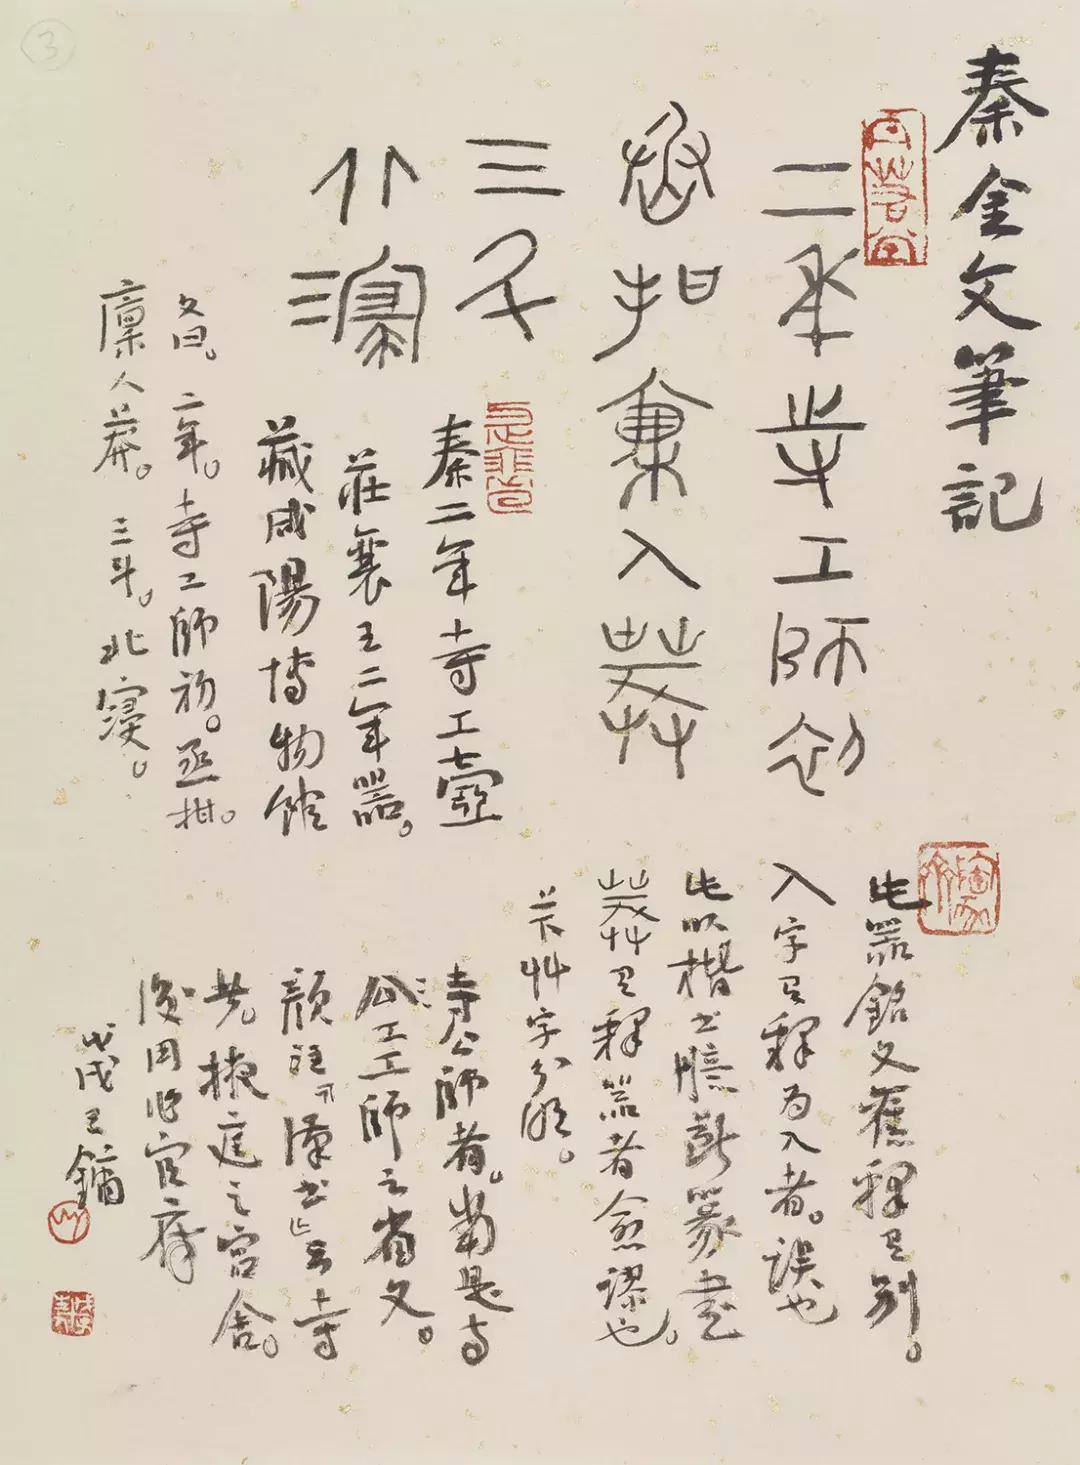 秦金文筆記
二年寺工師初
丞拑廩人莽
三斗
北寢
秦二年寺工壺
莊襄王二年器。
藏咸陽博物館
文曰。二年。寺工師初。丞拑。
廩人莽。三斗。北寢。
此器銘文舊釋有別。
入字有釋為入者。誤也
此以楷書臆斷篆書
莽有釋器者愈謬也。
艸字分明。
寺公師者。當是寺
公工工師之省文。
顏注漢書云寺
先掖庭之宮舍。
後用作官府
戊戌王鏞
3